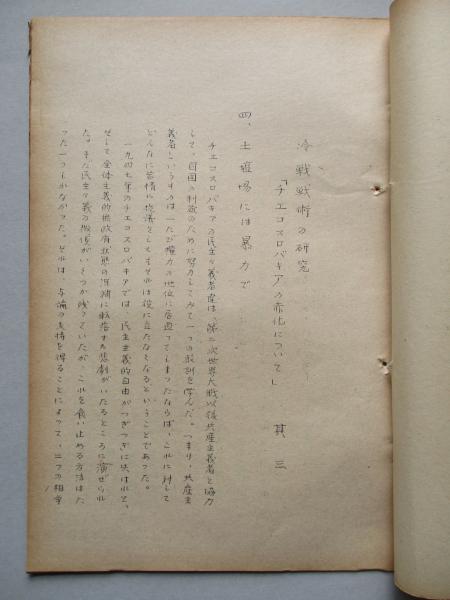 冷戦戦術の研究
「チエコスロバキアの赤化について」 其三
四、土壇場には暴力で
チエコスロバキアの民主々義者達は、第二次世界大戦以後共産主義者と協力
して、自国の利益のために努力してみて一つの教訓を学んだ。つまり、共産主
義者というものは一たび権力の地位に居座ってしまったならば、これに対して
どんなに苦情や抗議をしてもそれは役に立たなくなるということであった。
一九四七年のチエコスロバキアでは、民主主義的自由がつぎつぎに失はれて、
そして全体主義的無政府状態の深淵に転落する悲劇がいたるところに演ぜられ
た。まだ民主々義の微候がいくつか残っていたが、これを食い止める方法はた
った一つしかなかった。それは、与論の支持を得ることによって、二つの相対